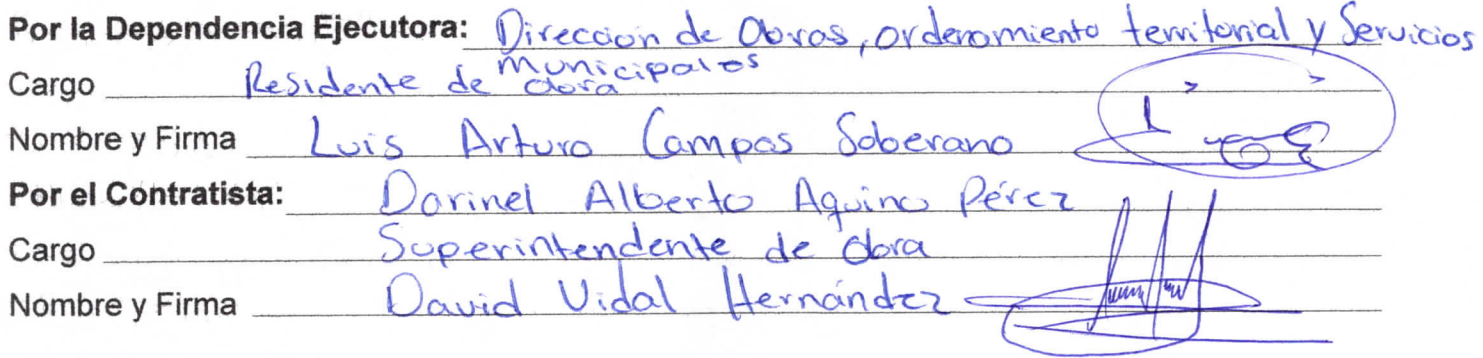 Por la Dependencia Ejecutora: Direccion de Obras, ordenamiento territorial y Servicios
municipales
Cargo Residente de obra
Nombre y Firma Luis Arturo Campos Soberano
Por el Contratista: Darinel Alberto Aquino Pérez
Cargo Superintendente de obra
Nombre y Firma David Vidal Hernández